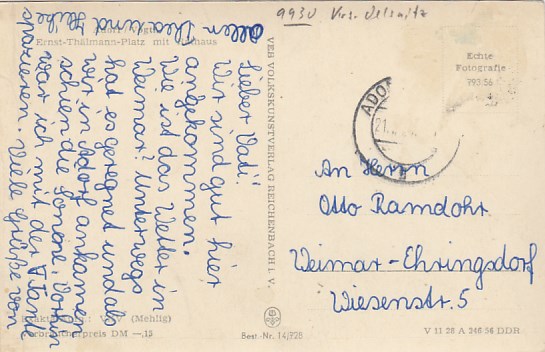 9930 Krs. Oelsnitz
Adorf Vogtl.
Ernst-Thälmann-Platz mit Rathaus
Lieber Vati!
Wir sind gut hier
angekommen.
Wie ist das Wetter in
Weimar? Unterwegs
hat es geregnet und als
wir in Adorf ankamen
schien die Sonne. Vorhin
war ich mit der T. Tante
spazieren. Viele Grüße von
allen Thea und Heike
(Mehlig)
Verbraucherpreis DM —,15
VEB VOLKSKUNSTVERLAG REICHENBACH I. V.
Best.-Nr. 14/328
Echte
Fotografie
793 56
ADO
21.
An Herrn
Otto Ramdohr
Weimar-Ehringsdorf
Wiesenstr. 5
V 11 28 A 246 56 DDR